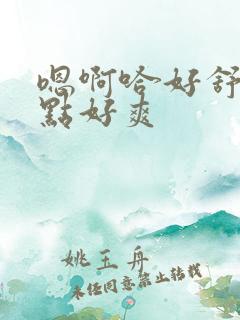 嗯啊哈好舒
點好爽
姚王舟
未经同意禁止转载